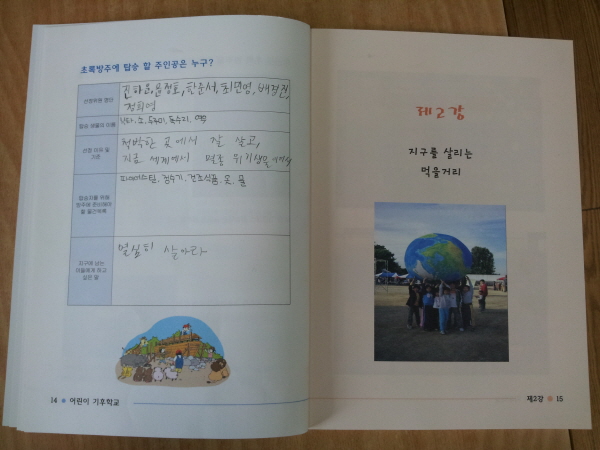 초록방주에 탑승 할 주인공은 누구?
선정위원 명단
정희영
탑승 생물의 이름
선정 이유 및
기준
척박한 곳에서 잘 살고,
지금 세계에서 멸종 위기
탑승자를 위해
방주에 준비해야
할 물건목록
파이어스틸, 정수기, 건조식품, 옷, 물
지구에 남는
이들에게 하고
싶은 말
열심히 살아라
14 어린이 기후학교
제2강
지구를 살리는
먹을거리
제2강 15